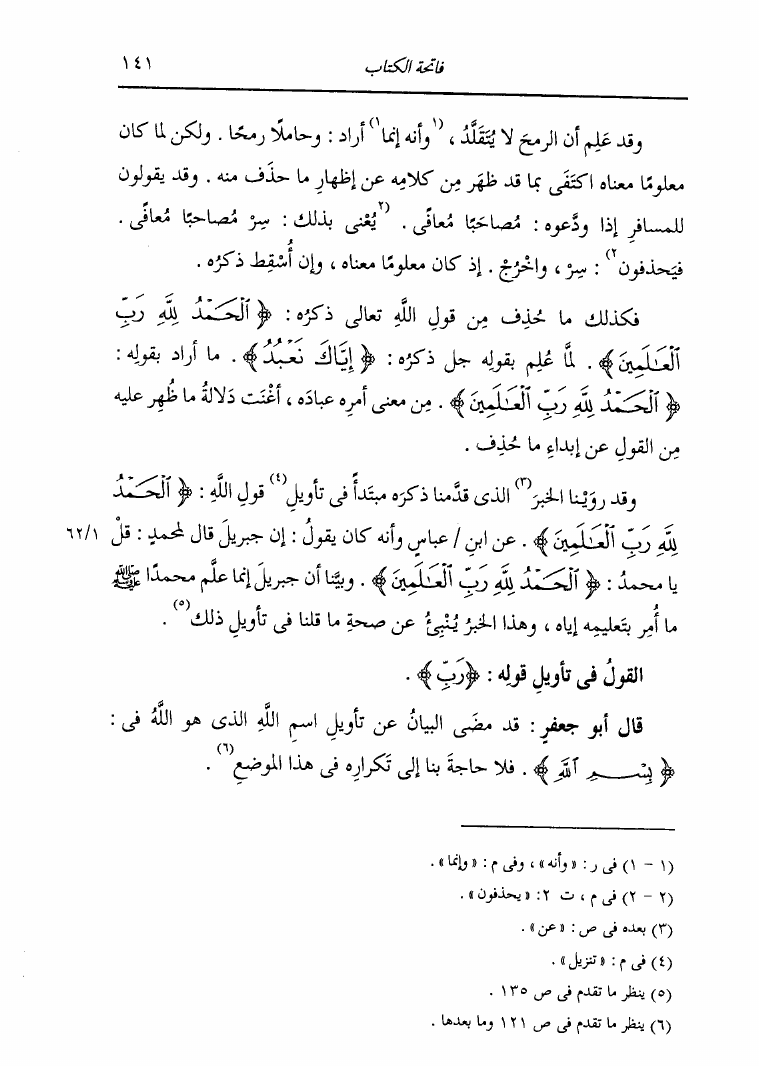 فاتحة الكتاب ١٤١
وقد عَلِم أن الرمحَ لا يُتَقَلَّدُ ، (١وأنه إنما١) أراد : وحاملًا رمحًا . ولكن لما كان
معلومًا معناه اكتَفَى بما قد ظهَر مِن كلامِه عن إظهارِ ما حذَف منه . وقد يقولون
للمسافرِ إذا ودَّعوه : مُصاحَبًا مُعافًى . (٢يُعْنى بذلك : سِرْ مُصاحبًا مُعافًى .
فيَحذفون٢) : سِرْ ، واخْرُجْ . إذ كان معلومًا معناه ، وإن أُسْقِط ذكرُه .
فكذلك ما حُذِف مِن قولِ اللَّهِ تعالى ذكرُه : ﴿ ٱلْحَمْدُ لِلَّهِ رَبِّ
ٱلْعَٰلَمِينَ ﴾ . لمَّا عُلِم بقولِه جل ذكرُه : ﴿ إِيَّاكَ نَعْبُدُ ﴾ . ما أراد بقولِه :
﴿ ٱلْحَمْدُ لِلَّهِ رَبِّ ٱلْعَٰلَمِينَ ﴾ . مِن معنى أمرِه عبادَه ، أغْنَت دَلالةُ ما ظُهِر عليه
مِن القولِ عن إبداءِ ما حُذِف .
وقد روَيْنا الخبرَ(٣) الذى قدَّمنا ذكرَه مبتَدأً فى تأويلِ(٤) قولِ اللَّهِ : ﴿ ٱلْحَمْدُ
لِلَّهِ رَبِّ ٱلْعَٰلَمِينَ ﴾ . عن ابنِ / عباسٍ وأنه كان يقولُ : إن جبريلَ قال لمحمدٍ : قلْ ٦٢/١
يا محمدُ : ﴿ ٱلْحَمْدُ لِلَّهِ رَبِّ ٱلْعَٰلَمِينَ ﴾ . وبيَّنا أن جبريلَ إنما علَّم محمدًا ﷺ
ما أُمِر بتَعليمِه إياه ، وهذا الخبرُ يُنْبِئُ عن صحةِ ما قلنا فى تأويلِ ذلك(٥) .
القولُ فى تأويلِ قولِه : ﴿رَبِّ ﴾ .
قال أبو جعفرٍ : قد مضَى البيانُ عن تأويلِ اسمِ اللَّهِ الذى هو اللَّهُ فى :
﴿ بِسْمِ ٱللَّهِ ﴾ . فلا حاجةَ بنا إلى تَكرارِه فى هذا الموضعِ(٦) .
(١ - ١) فى ر : « وأنه » ، وفى م : « وإنما » .
(٢ - ٢) فى م ، ت ٢: « يحذفون » .
(٣) بعده فى ص : « عن » .
(٤) فى م : « تنزيل » .
(٥) ينظر ما تقدم فى ص ١٣٥ .
(٦) ينظر ما تقدم فى ص ١٢١ وما بعدها .